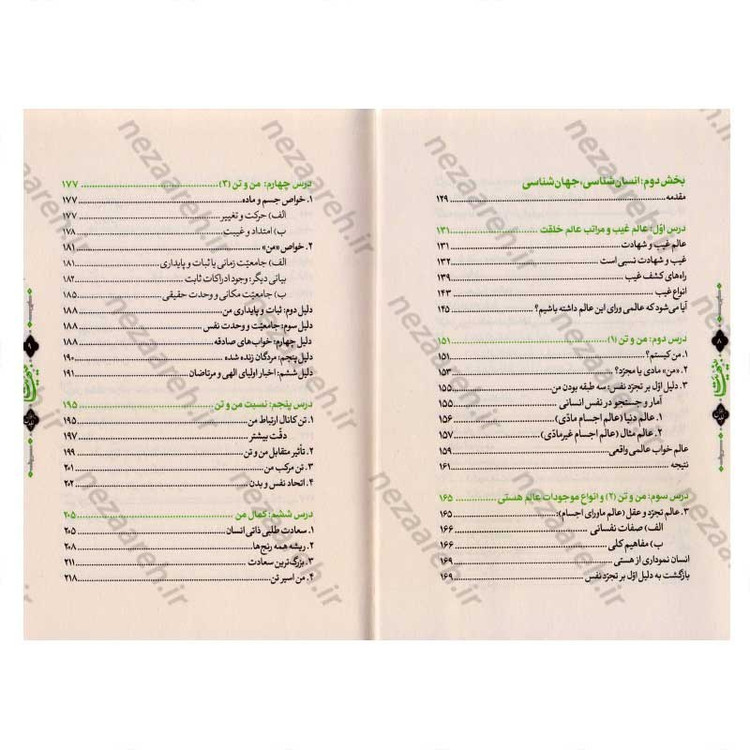 بخش دوم: انسان‌شناسی، جهان‌شناسی
مقدمه ... ۱۲۹
درس اوّل: عالم غیب و مراتب عالم خلقت ... ۱۳۱
عالم غیب و شهادت ... ۱۳۱
غیب و شهادت نسبی است ... ۱۳۲
راه‌های کشف غیب ... ۱۳۹
انواع غیب ... ۱۴۳
آیا می‌شود که عالمی ورای این عالم داشته باشیم؟ ... ۱۴۵
درس دوم: من و تن (۱) ... ۱۵۱
۱. من کیستم؟ ... ۱۵۱
۲. «من» مادی یا مجرّد؟ ... ۱۵۳
۳. دلیل اوّل بر تجرّد نفس: سه طبقه بودن من ... ۱۵۵
آمار و جستجو در نفس انسانی ... ۱۵۵
۱. عالم دنیا (عالم اجسام مادّی) ... ۱۵۶
۲. عالم مثال (عالم اجسام غیرمادّی) ... ۱۵۷
عالم خواب عالمی واقعی ... ۱۵۹
نتیجه ... ۱۶۱
درس سوم: من و تن (۲) و انواع موجودات عالم هستی ... ۱۶۵
۳. عالم تجرّد و عقل (عالم ماورای اجسام): ... ۱۶۵
الف) صفات نفسانی ... ۱۶۶
ب) مفاهیم کلی ... ۱۶۶
انسان نموداری از هستی ... ۱۶۹
بازگشت به دلیل اوّل بر تجرّد نفس ... ۱۶۹
۸
درس چهارم: من و تن (۳) ... ۱۷۷
۱. خواص جسم و ماده ... ۱۷۷
الف) حرکت و تغییر ... ۱۷۷
ب) امتداد و غیبت ... ۱۷۸
۲. خواص «من» ... ۱۸۱
الف) جامعیّت زمانی یا ثبات و پایداری ... ۱۸۱
بیانی دیگر: وجود ادراکات ثابت ... ۱۸۲
ب) جامعیّت مکانی و وحدت حقیقی ... ۱۸۵
دلیل دوم: ثبات و پایداری من ... ۱۸۸
دلیل سوم: جامعیّت و وحدت نفس ... ۱۸۸
دلیل چهارم: خواب‌های صادقه ... ۱۸۸
دلیل پنجم: مردگان زنده شده ... ۱۹۰
دلیل ششم: اخبار اولیای الهی و مرتاضان ... ۱۹۱
درس پنجم: نسبت من و تن ... ۱۹۵
۱. تن کانال ارتباط من ... ۱۹۵
دقّت بیشتر ... ۱۹۷
۲. تأثیر متقابل من و تن ... ۱۹۹
۳. تن مرکب من ... ۲۰۱
۴. اتحاد نفس و بدن ... ۲۰۲
درس ششم: کمال من ... ۲۰۵
۱. سعادت طلبی ذاتی انسان ... ۲۰۵
۲. ریشه همه رنج‌ها ... ۲۰۸
۳. بزرگ‌ترین سعادت ... ۲۱۱
۴. من اسیر تن ... ۲۱۸
۹
nezaareh.ir